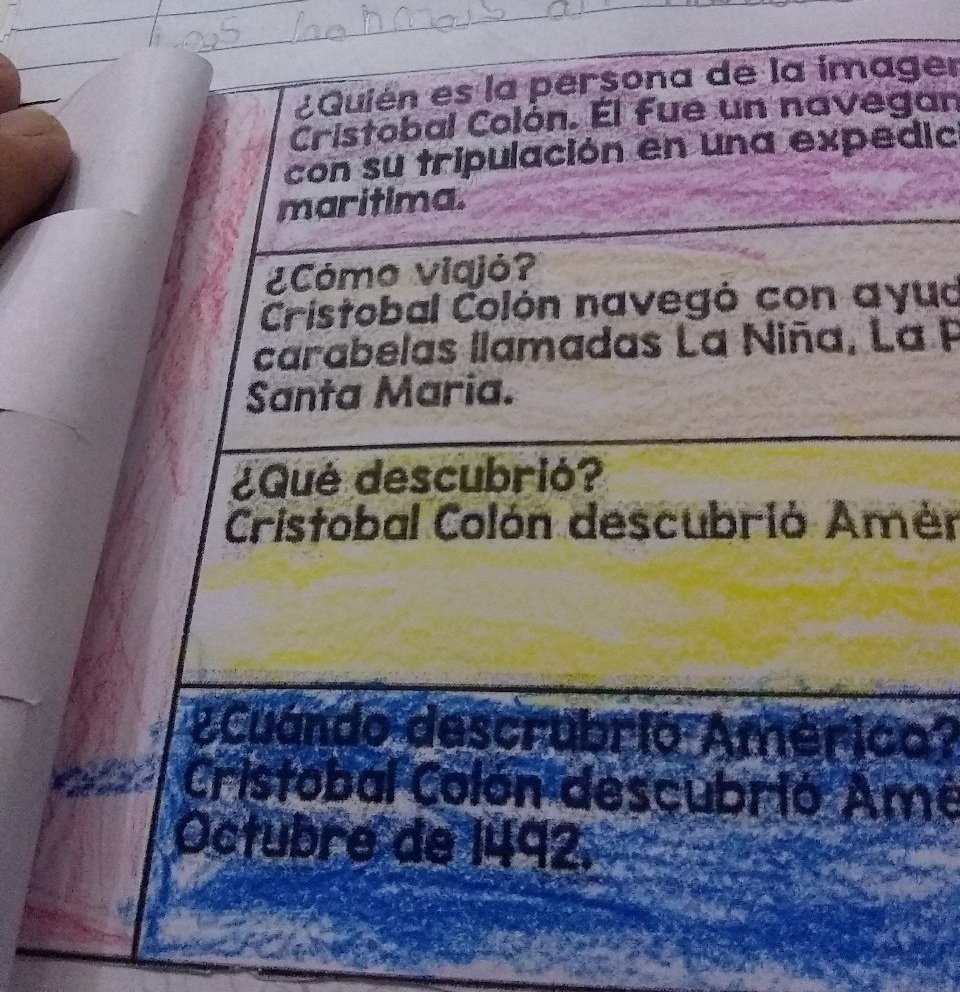 ¿Quién es la persona de la imagen
Cristobal Colón. Él fue un navegan
con su tripulación en una expedici
maritima.
¿Cómo viajó?
Cristobal Colón navegó con ayud
carabelas llamadas La Niña, La P
Santa Maria.
¿Qué descubrió?
Cristobal Colón descubrió Amér
¿Cuándo descrubrió América?
Cristobal Colón descubrió Amé
Octubre de 1492.